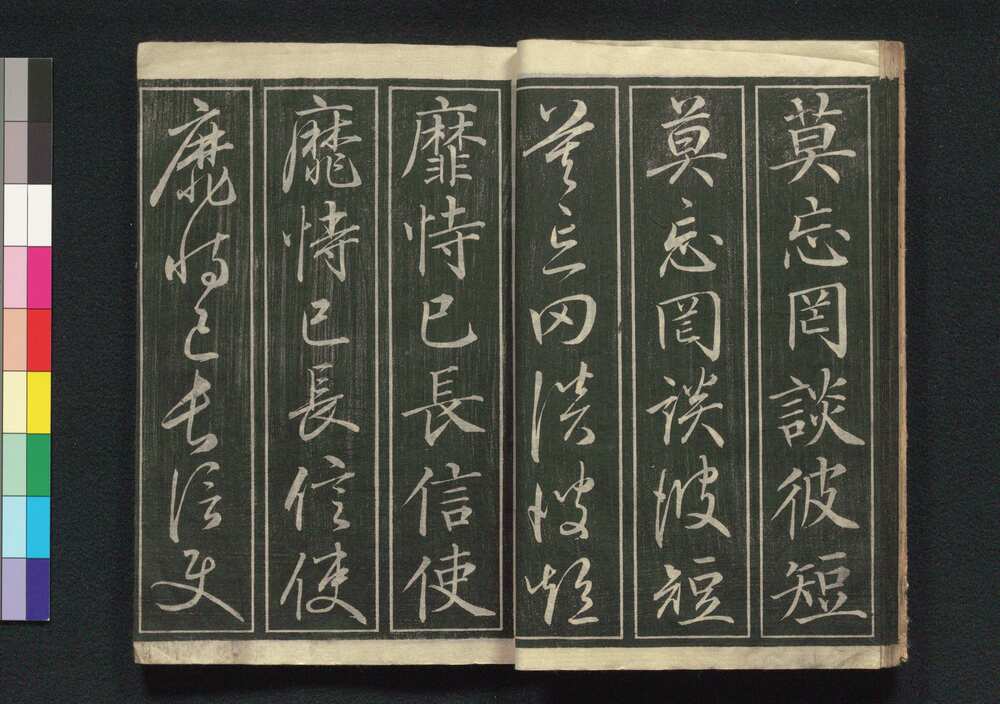 莫忘罔談彼短
莫忘罔談彼短
莫忘罔談彼短
靡恃已長信使
靡恃已長信使
靡恃已長信使